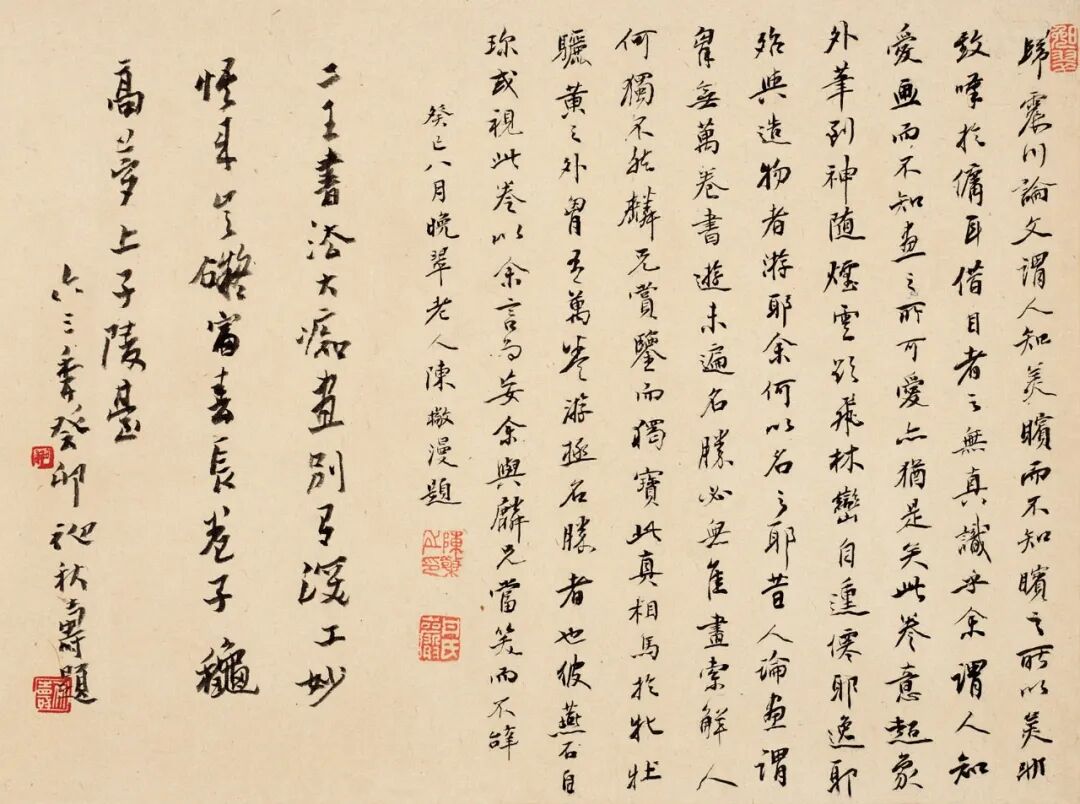 歸震川論文謂人知美矉而不知矉之所以美聊
致嘆於傭耳借目者之無真識乎余謂人知
愛畫而不知畫之所可愛亦猶是矣此卷意超象
外筆到神隨煙雲欲飛林巒自遠僊耶逸耶
殆與造物者游耶余何以名之耶昔人論畫謂
胷無萬卷書遊未遍名勝必無佳畫索解人
何獨不然麟兄賞鑒而獨寶此真相馬於牝牡
驪黃之外胷有萬卷游極名勝者也彼燕石自
珍或視此卷以余言為妄余與麟兄當笑而不辞
癸巳八月晚翠老人陳檙漫題
二王書法大癡畫別有深工妙
悟來豈礙富春長卷子穐
高夢上子陵臺
六三季癸卯秋寿題